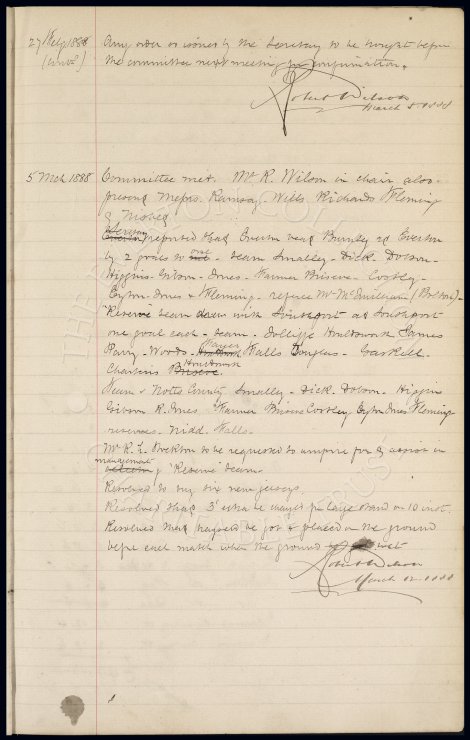 27 Feby 1888 Any order as issued by the Secretary to be brought before
(contd) the committee next meeting for confirmation.
Robert Wilson
March 5 1888
5 Mch 1888 Committee met. Mr R. Wilson in chair also
present Messrs. Ramsay. Wills. Richards Fleming
& Nisbet
Secretary
Everton reported that Everton beat Burnley at Everton
one
by 2 goals to team Smalley - Dick. Dobson -
Higgins. Gibson - Jones. Farmer Briscoe - Costley -
Evton. Jones & Fleming - referee Mr (Bolton) -
"Reserve team drew with Southport at Southport
one goal each - team. Jolliffe Houldsworth James
Parry - Woods - Falls Douglas - Gaskell
Houldsworth
Charters Briscoe
Team v Notts County Smalley - Dick. Dobson - Higgins
Gibson R. Jones Farmer Briscoe Costley Evton Jones Fleming
reserves - Nidd. Falls -
Mr R. E. Brockton to be requested to umpire for & assist in
management
selection of "Reserve" team
Resolved to buy six new jerseys.
Resolved that 3d extra be charged for large stand on 10 inst.
Resolved that be got & placed on the ground
before each match when the ground is wet
Robert Wilson
March 12. 1888
THE EVERTON COLLECTION